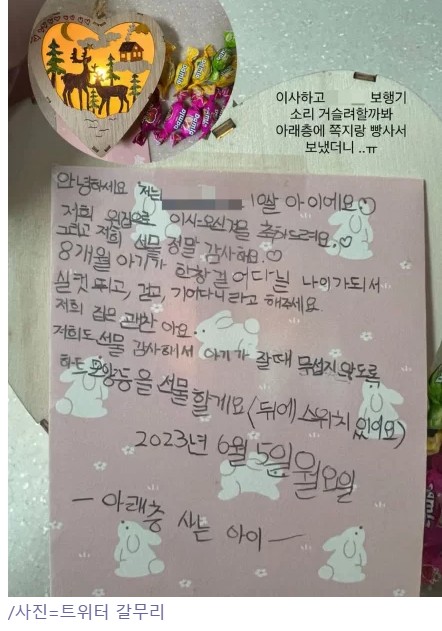 이사하고 __ 보행기
소리 거슬려할까봐
아래층에 쪽지랑 빵사서
보냈더니 ..ㅠ
안녕하세요 저는 10살 아이에요
저희 윗집으로 이사오신걸 축하드려요.♡
그리고 저희 선물 정말 감사해요.♡
8개월 아기가 한창 걸어다닐 나이가 되서
실컷 뛰고, 걷고, 기어다니라고 해주세요
저희 집은 괜찮아요.
저희도 선물 감사해서 아기가 잘때 무섭지 않도록
하트모양등을 선물할게요(뒤에 스위치 있어요)
2023년 6월 5일 월요일
- 아래층 사는 아이 -
/사진=트위터 갈무리